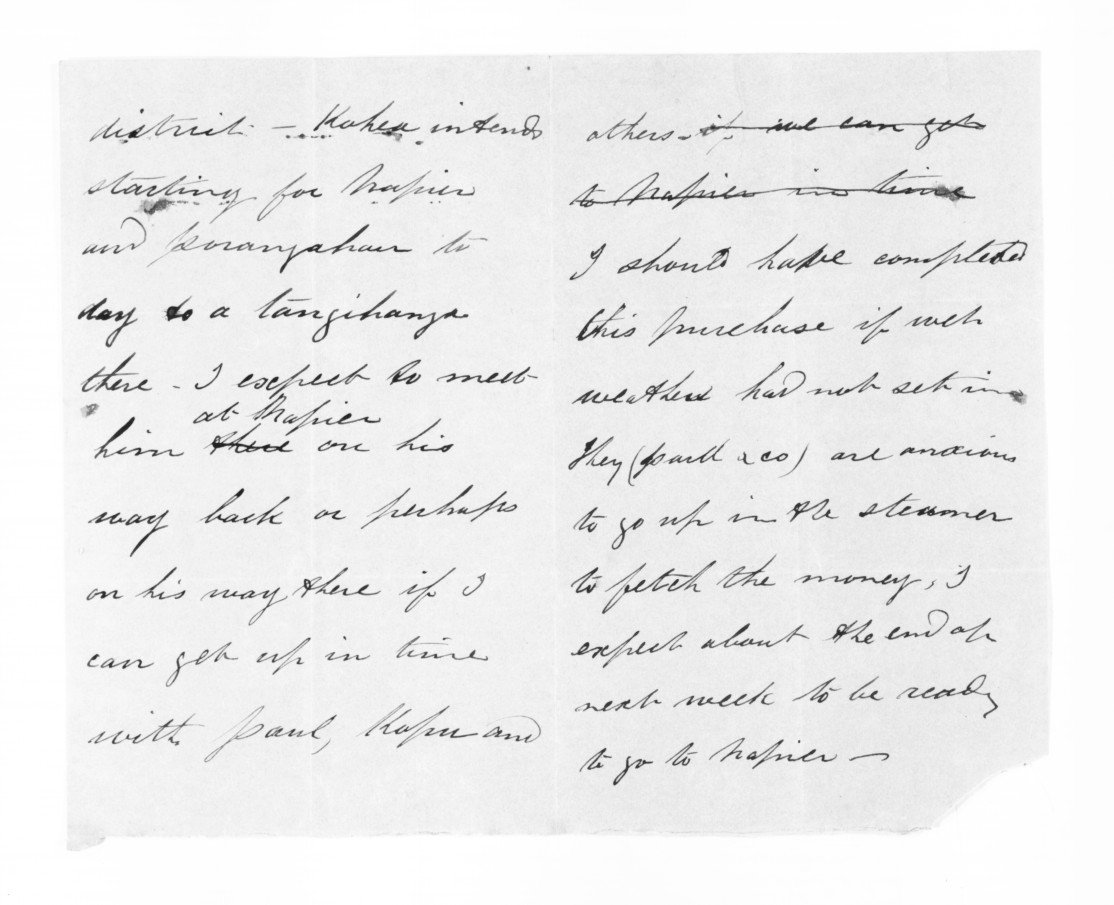 district - Kohea intends
starting for Napier
and porangahau to
day to a tangihanga
there - I expect to meet
at Napier
him there on his
way back or perhaps
on his way there if I
can get up in time
with paul, Kopu and
others - if we can get
to Napier in time
I should have completed
this purchase if wet
weather had not set in
They (paul & co) are anxious
to go up in the steamer
to fetch the money, I
expect about the end of
next week to be ready
to go to Napier -